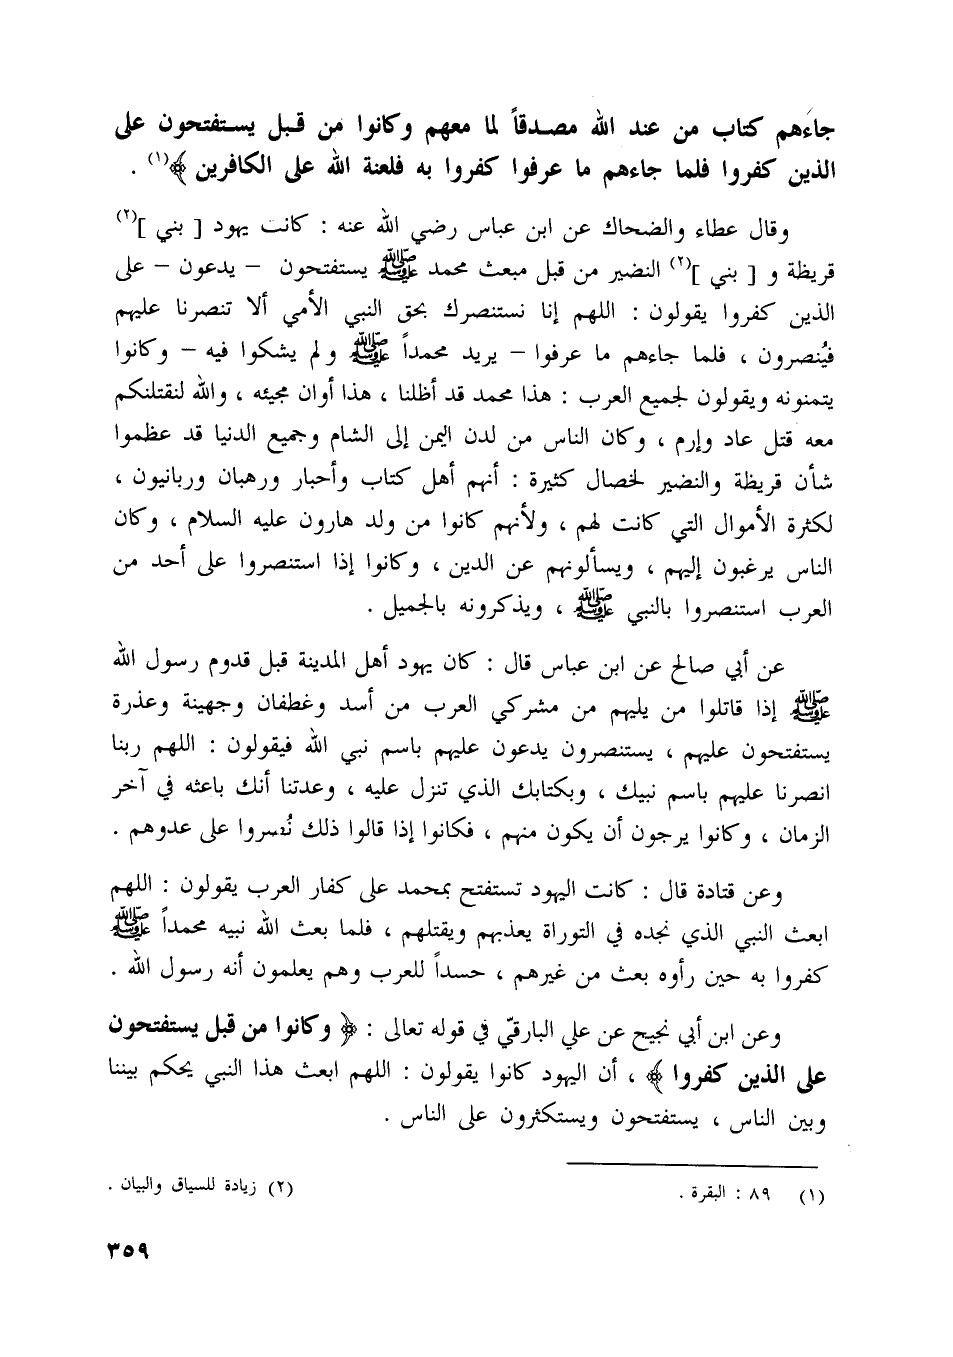 جاءهم كتاب من عند الله مصدقاً لما معهم وكانوا من قبل يستفتحون على
الذين كفروا فلما جاءهم ما عرفوا كفروا به فلعنة الله على الكافرين ﴾(١) .
وقال عطاء والضحاك عن ابن عباس رضي الله عنه : كانت يهود [ بني ](٢)
قريظة و [ بني ](٢) النضير من قبل مبعث محمد ﷺ يستفتحون – يدعون – على
الذين كفروا يقولون : اللهم إنا نستنصرك بحق النبي الأمي ألا تنصرنا عليهم
فيُنصرون ، فلما جاءهم ما عرفوا – يريد محمداً ﷺ ولم يشكوا فيه – وكانوا
يتمنونه ويقولون لجميع العرب : هذا محمد قد أظلنا ، هذا أوان مجيئه ، والله لنقتلنكم
معه قتل عاد وإرم ، وكان الناس من لدن اليمن إلى الشام وجميع الدنيا قد عظموا
شأن قريظة والنضير لخصال كثيرة : أنهم أهل كتاب وأحبار ورهبان وربانيون ،
لكثرة الأموال التي كانت لهم ، ولأنهم كانوا من ولد هارون عليه السلام ، وكان
الناس يرغبون إليهم ، ويسألونهم عن الدين ، وكانوا إذا استنصروا على أحد من
العرب استنصروا بالنبي ﷺ ، ويذكرونه بالجميل .
عن أبي صالح عن ابن عباس قال : كان يهود أهل المدينة قبل قدوم رسول الله
ﷺ إذا قاتلوا من يليهم من مشركي العرب من أسد وغطفان وجهينة وعذرة
يستفتحون عليهم ، يستنصرون يدعون عليهم باسم نبي الله فيقولون : اللهم ربنا
انصرنا عليهم باسم نبيك ، وبكتابك الذي تنزل عليه ، وعدتنا أنك باعثه في آخر
الزمان ، وكانوا يرجون أن يكون منهم ، فكانوا إذا قالوا ذلك نُصروا على عدوهم .
وعن قتادة قال : كانت اليهود تستفتح بمحمد على كفار العرب يقولون : اللهم
ابعث النبي الذي نجده في التوراة يعذبهم ويقتلهم ، فلما بعث الله نبيه محمداً ﷺ
كفروا به حين رأوه بعث من غيرهم ، حسداً للعرب وهم يعلمون أنه رسول الله .
وعن ابن أبي نجيح عن علي البارقيّ في قوله تعالى : ﴿ وكانوا من قبل يستفتحون
على الذين كفروا ﴾ ، أن اليهود كانوا يقولون : اللهم ابعث هذا النبي يحكم بيننا
وبين الناس ، يستفتحون ويستكثرون على الناس .
(١) ٨٩ : البقرة . (٢) زيادة للسياق والبيان .
٣٥٩